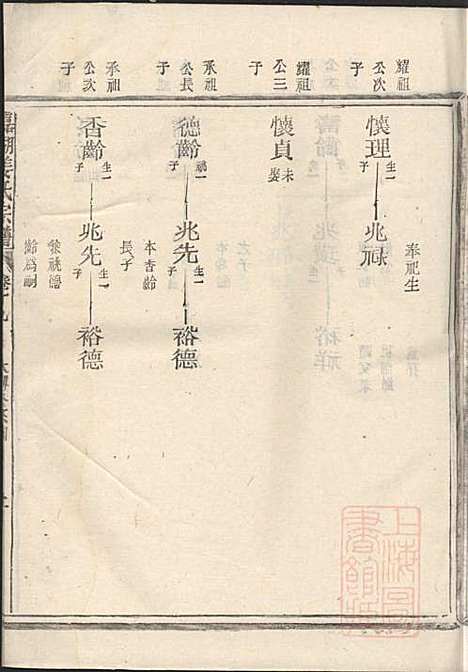 耀祖
公次
子
懷理 生一子
兆祿
奉祀生
耀祖
公三
子
懷貞 未娶
承祖
公長
子
德齡 祧一子
兆先 生一子
裕德
本杳齡
長子
承祖
公次
子
杳齡 生一子
兆先 生一子
裕德
兼祧德
齡爲嗣
氏宗譜
上海圖
書館藏